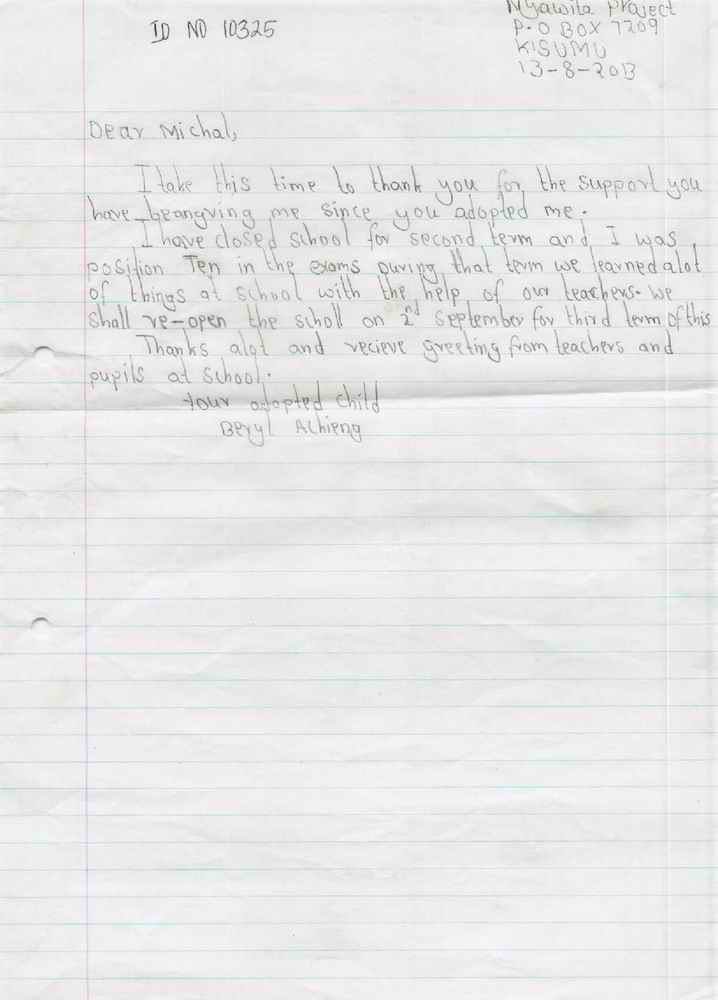 Nyawita Project
ID NO 10325
P.O BOX 7209
KISUMU
13-8-2013
Dear Michal,
I take this time to thank you for the support you
have beangving me since you adopted me.
I have closed school for second term and I was
position Ten in the exams During that term we learned alot
of things at school with the help of our teachers. We
shall re-open the scholl on 2nd September for third term of this
Thanks alot and recieve greeting from teachers and
pupils at school.
Your adopted child
Beryl Achieng